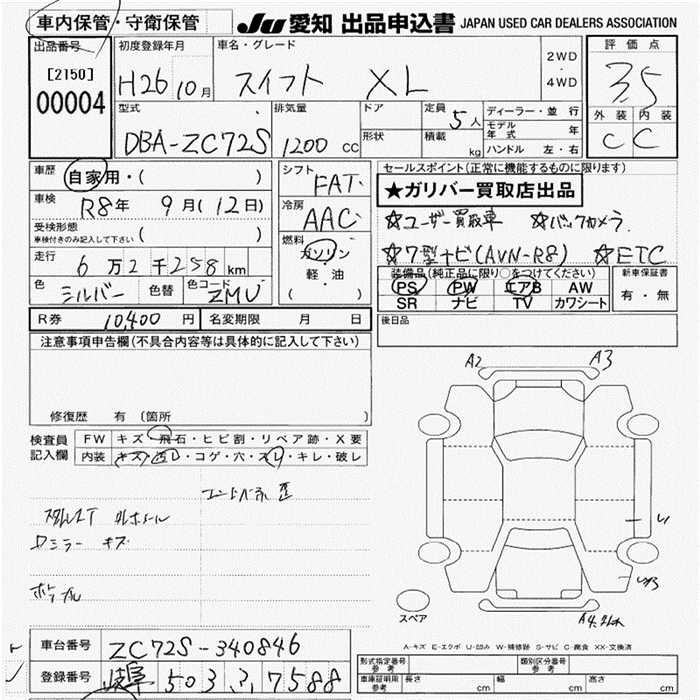 車内保管・守衛保管
JU 愛知 出品申込書 JAPAN USED CAR DEALERS ASSOCIATION
出品番号
[2150]
00004
初度登録年月
H26 10月
車名・グレード
スイフト XL
2WD
・
4WD
評価点
3.5
外装 内装
C C
型式
DBA-ZC72S
排気量
1200 cc
ドア
形状
定員
5人
積載
kg
ディーラー・並行
モデル年式 年
ハンドル 左・右
車歴
自家用・( )
車検
R8年 9月(12日)
受検形態
車検付きのみ記入して下さい ( )
走行
6万2千258km
色
シルバー
色替
色コード
ZMU
シフト
FAT
冷房
AAC
燃料
ガソリン
・
軽・油
( )
セールスポイント(正常に機能するものに限ります)
★ガリバー買取店出品
☆ユーザー買取車 ☆バックカメラ
☆7型ナビ(AVN-R8) ☆ETC
装備品(純正品に限り○をつけてください)
PS PW エアB AW
SR ナビ TV カワシート
新車保証書
有・無
後日品
R券 10,400円 名変期限 月 日
注意事項申告欄(不具合内容等は具体的に記入して下さい)
修復歴 有 (箇所 )
検査員
記入欄
FW キズ・飛石・ヒビ割・リペア跡・X要
内装 キズ・汚レ・コゲ・穴・スレ・キレ・破レ
Dミラー キズ
A2 A3
スペア
A-キズ E-エクボ U-凹み W-補修跡 S-サビ C-腐食 XX-交換済
車台番号 ZC72S-340846
登録番号 岐阜 503 7588
型式指定番号
参考
類別区分番号
参考
車庫証明用
参考
長さ cm 幅 cm 高さ cm